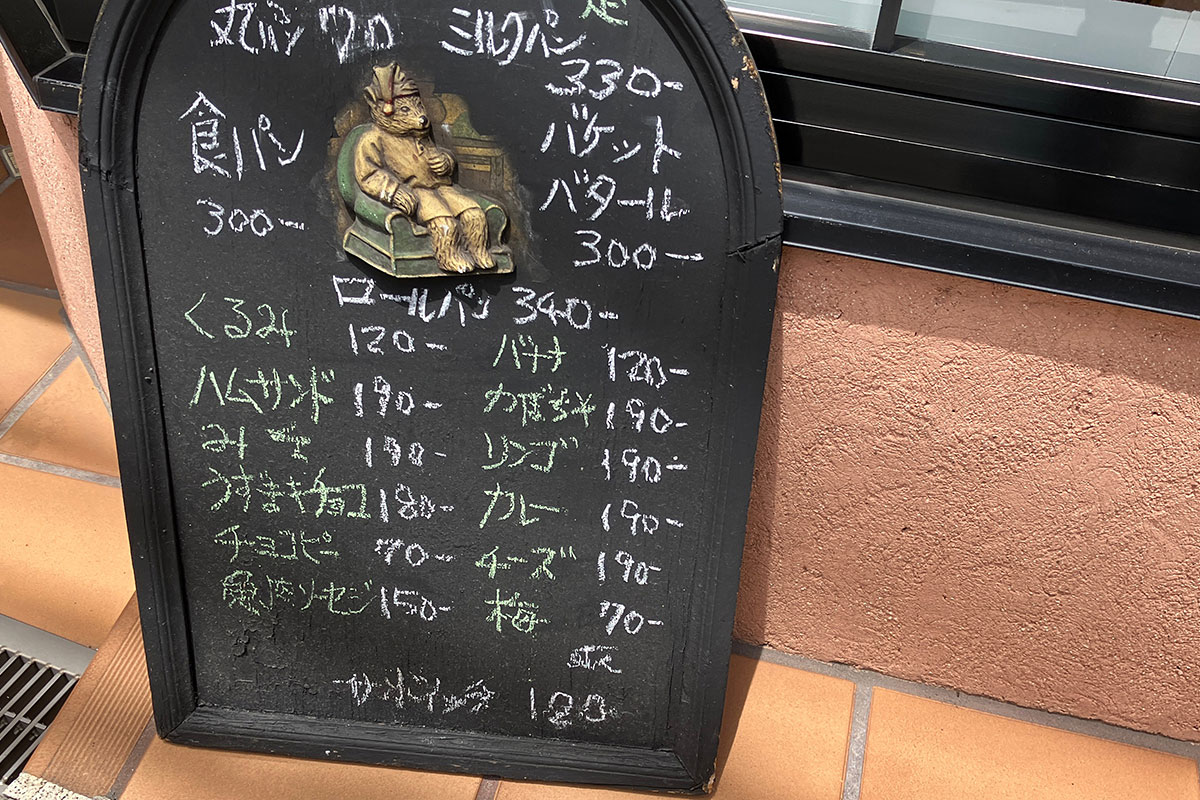 丸パン 70 ミルクパン
330-
食パン
300-
バケット
バタール
300-
ロールパン 340-
くるみ 120- バナナ 120-
ハムサンド 190- かぼちゃ 190-
みそ 190- リンゴ 190-
うずまきチョコ 180- カレー 190-
チョコピー 70- チーズ 190-
魚肉ソーセジ 150- 梅 70-
etc